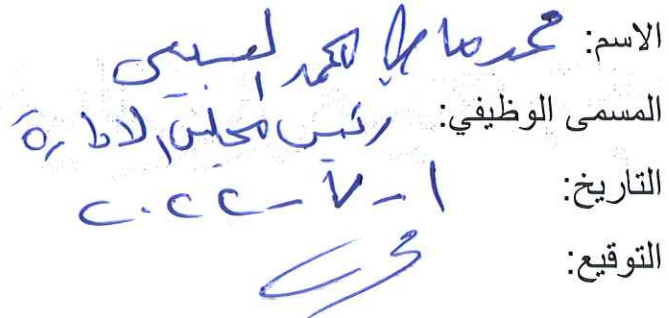 الاسم: محمد صالح الحمد السبيعي
المسمى الوظيفي: رئيس مجلس الادارة
التاريخ: ١-٧-٢٠٢٢
التوقيع: